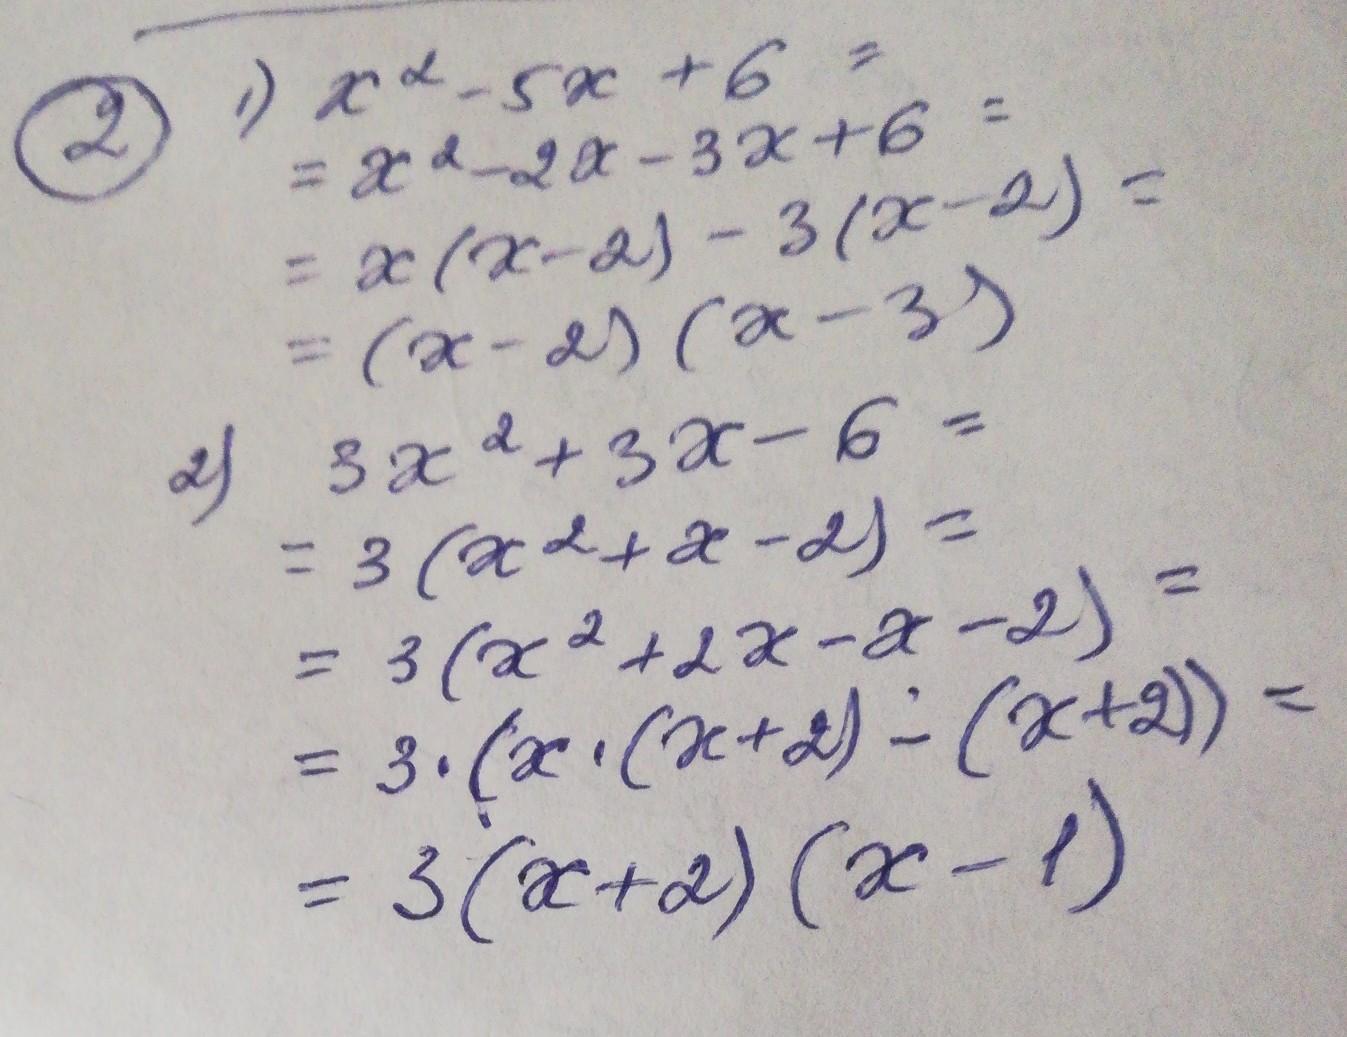 2 1) x² - 5x + 6 =
= x² - 2x - 3x + 6 =
= x(x-2) - 3(x-2) =
= (x-2)(x-3)
2) 3x² + 3x - 6 =
= 3(x² + x - 2) =
= 3(x² + 2x - x - 2) =
= 3·(x·(x+2) - (x+2)) =
= 3(x+2)(x-1)